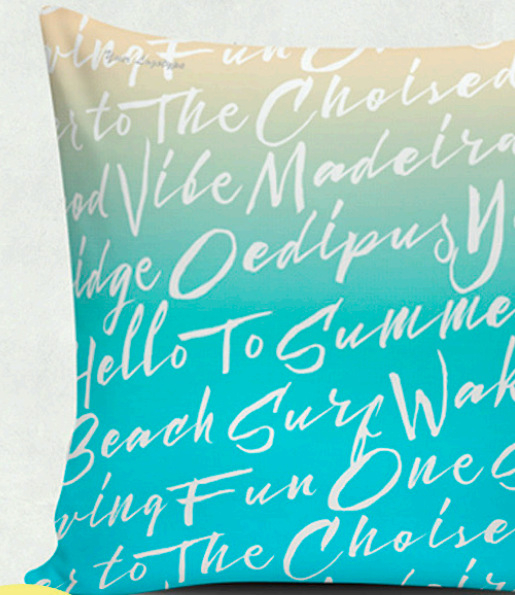 ving Fun On
er to The Choised
ood Vibe Madeira
idge Oedipus Y
Hello To Summe
Beach Surf Wak
ving Fun One S
er to The Choise